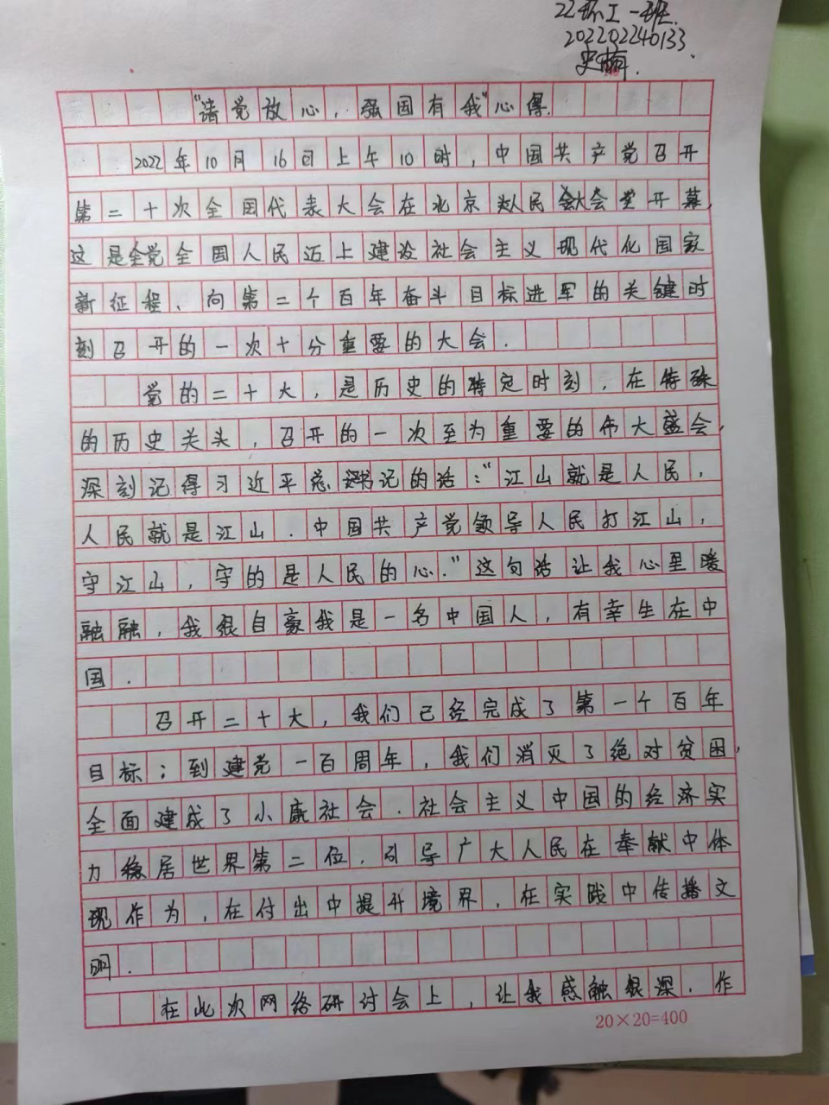 22环工一班
202202240133
史梅
"请党放心，强国有我"心得.
2022年10月16日上午10时，中国共产党召开
第二十次全国代表大会在北京人民大会堂开幕，
这是全党全国人民迈上建设社会主义现代化国家
新征程、向第二个百年奋斗目标进军的关键时
刻召开的一次十分重要的大会.
党的二十大，是历史的特定时刻，在特殊
的历史关头，召开的一次至为重要的伟大盛会，
深刻记得习近平总书记的话："江山就是人民，
人民就是江山.中国共产党领导人民打江山，
守江山，守的是人民的心."这句话让我心里暖
融融，我很自豪我是一名中国人，有幸生在中
国.
召开二十大，我们已经完成了第一个百年
目标；到建党一百周年，我们消灭了绝对贫困，
全面建成了小康社会.社会主义中国的经济实
力稳居世界第二位.引导广大人民在奉献中体
现作为，在付出中提升境界，在实践中传播文
明.
在此次网络研讨会上，让我感触很深.作
20×20=400